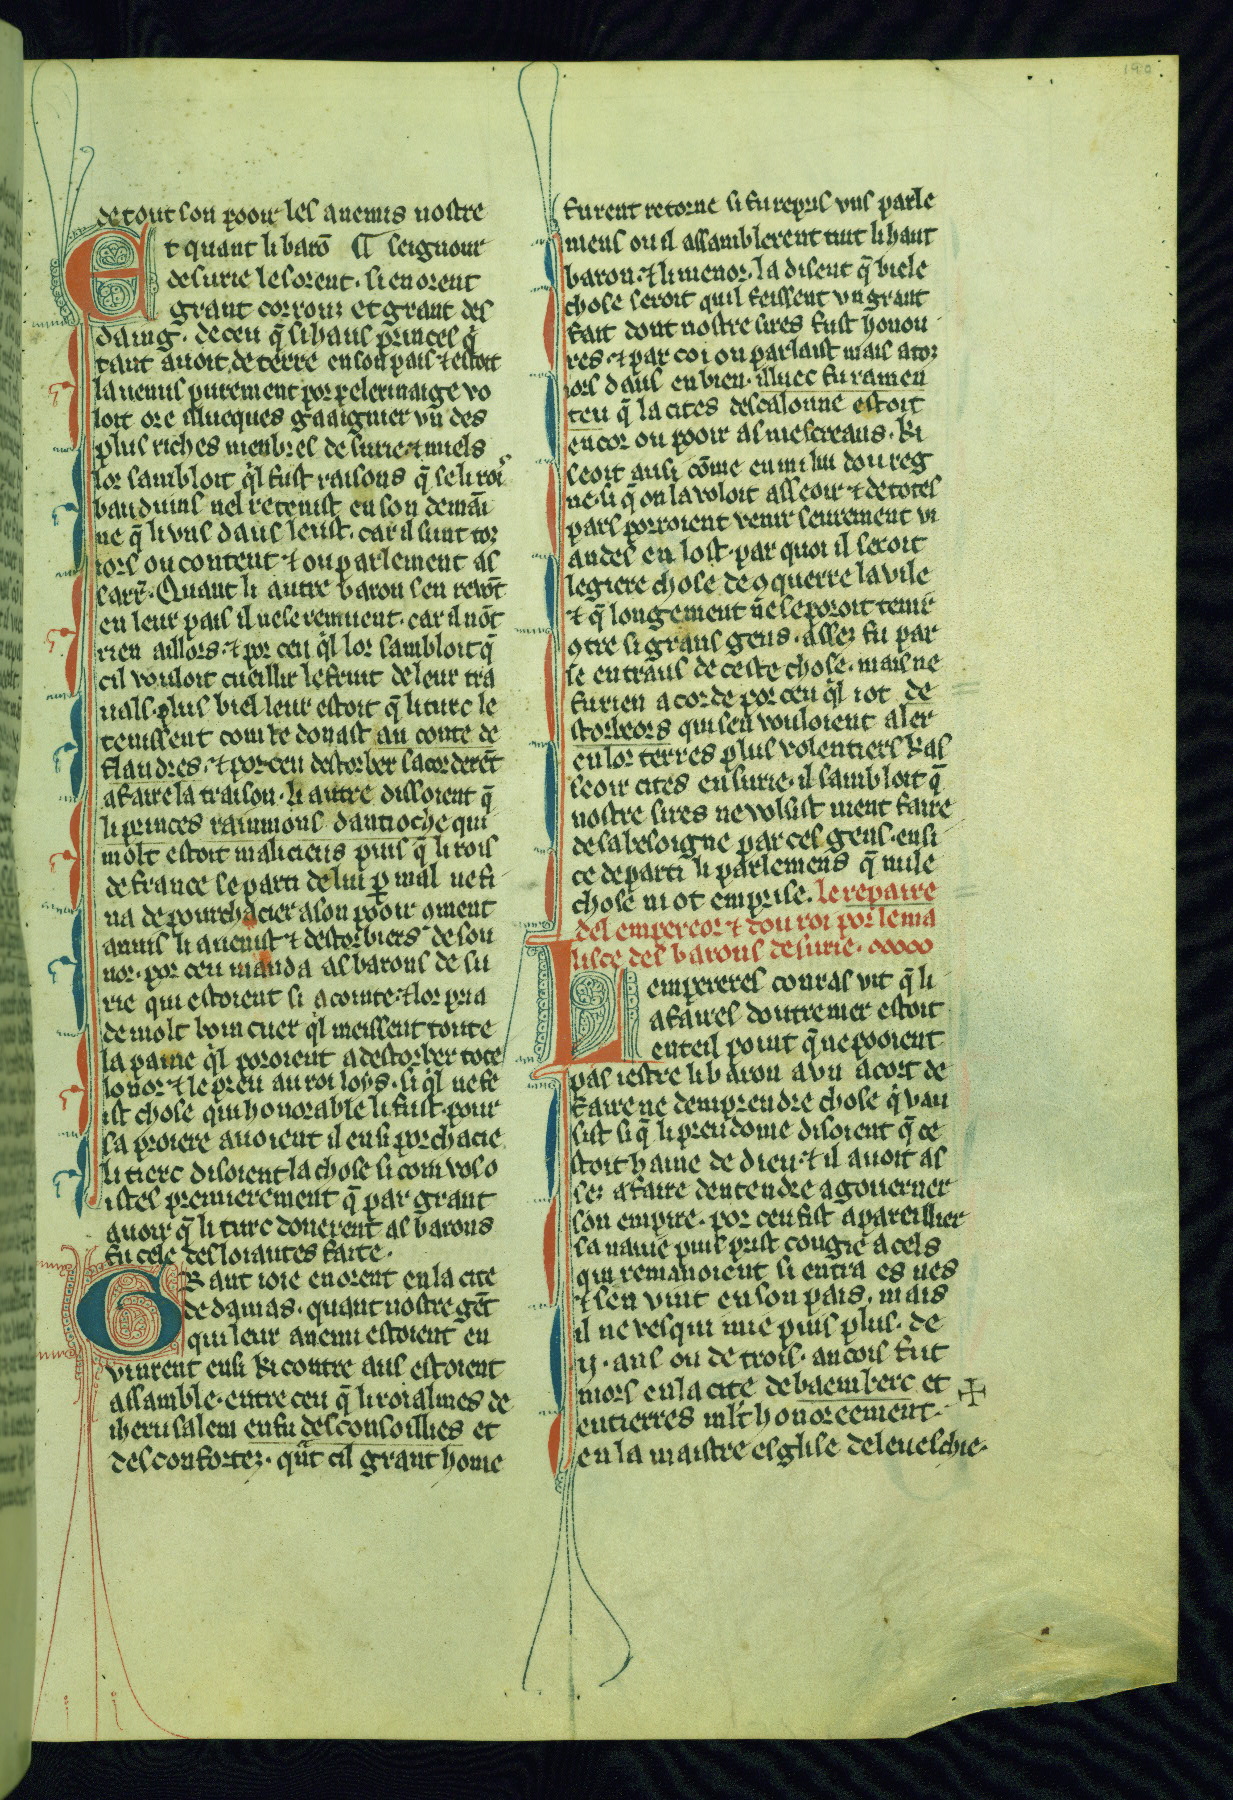 de tout son pooir les anemis nostre
Et quant li barō ¶ seignour
de surie le sorent · si en orent
grant corrouz et grant des
daing · de ceu q̄ si haus princes q̄
tant auoit de terre en son pais ⁊ estoit
la uenus purement por pelerinaige vo
loit ore illueques gaaignier vn des
plus riches menbres de surie · ⁊ miels
lor sambloit q̓l fust raisons q̄ se li rois
bauduins nel retenist en son demāi
ne q̄ li vns daus leust · car il sunt toz
iors ou content ⁊ ou parlement as
sarr̄ · Quant li autre baron sen reuōt
en leur pais il ne se remuent · car il nōt
rien aillors · ⁊ por ceu q̓l lor sambloit q̄
cil vouloit cueillir le fruit de leur tra
uals · plus biel leur estoit q̄ li turc le
tenissent com le donast au conte de
flandres · ⁊ por ceu destorber sacorderēt
a faire la traison · li autre dissoient q̄
li princes raimmons dantioche qui
molt estoit malicieus puis q̄ li rois
de france se parti de lui ꝑ mal ne fi
na de pourchacier a son pooir ꝯment
anuis li auenist ⁊ destorbiers de son
nor · por ceu manda as barons de su
rie qui estoient si acointe · ⁊ lor pria
de molt boin cuer q̓l meissent toute
la paine q̓l poroient a destorber tote
lonor ⁊ le preu au roi loys · si q̓l ne fe
ist chose qui honorable li fust · pour
sa proiere auoient il ensi porchacie
li tierc disoient la chose si com vos o
istes premierement q̄ par grant
auoir q̄ li turc donerent as barons
fu cele desloiautes faite ·
Grant ioie en orent en la cite
de damas · quant nostre gēt
qui leur anemi estoient en
vinrent ensi ki contre aus estoient
assamble · entre ceu q̄ li roialmes de
iherusalem en fu desconsoillies et
desconfortez · q̄nt cil grant home
furent retorne si fu repris vns parle
mens ou il assamblerent tuit li haut
baron · ⁊ li menor · la disent q̄ biele
chose seroit quil feissent vn grant
fait dont nostre sires fust honou
res · ⁊ par coi on parlaist mais a toz
iors daus en bien · illuec fu ramen
teu q̄ la cites descalonne estoit
encor ou pooir as mescreans · ki
seoit ausi cōme en mi liu dou reg
ne · si q̄ on la voloit asseoir ⁊ de totes
pars porroient venir seurement vi
andes en lost · par quoi il seroit
legiere chose de ꝯquerre la vile
⁊ q̄ longement ne se poroit tenir
ꝯtre si grans gens · assez fu par
le entraus de ceste chose · mais ne
fu rien acorde por ceu q̓l i ot de
storbeors qui sen vouloient aler
en lor terres plus volentiers kas
seoir cites en surie · il sambloit q̄
nostre sires ne volsist nient faire
de sa besoigne par ces gens · ensi
ce departi li parlemens q̄ nule
chose ni ot emprise · le repaire
del empereor ⁊ dou roi por le ma
lisce des barons de surie · ooooo
Lempereres conras vit q̄ li
afaires doutre mer estoit
en teil point q̄ ne pooient
pas iestre li baron a vn acort de
faire ne demprendre chose q̓ vau
sist si q̄ li preudome disoient q̄ ce
stoit haine de dieu · ⁊ il auoit as
sez a faire dentendre a gouerner
son empire · por ceu fist apareillier
sa nauie puis prist congie a cels
qui remanoient si entra es nes
⁊ sen vint en son pais · mais
il ne vesqui mie puis plus · de
ij · ans ou de trois · ancois fut
mors en la cite de baemberc et
entierres ml̄t honoreement ·
en la maistre esglise de leueschie ·